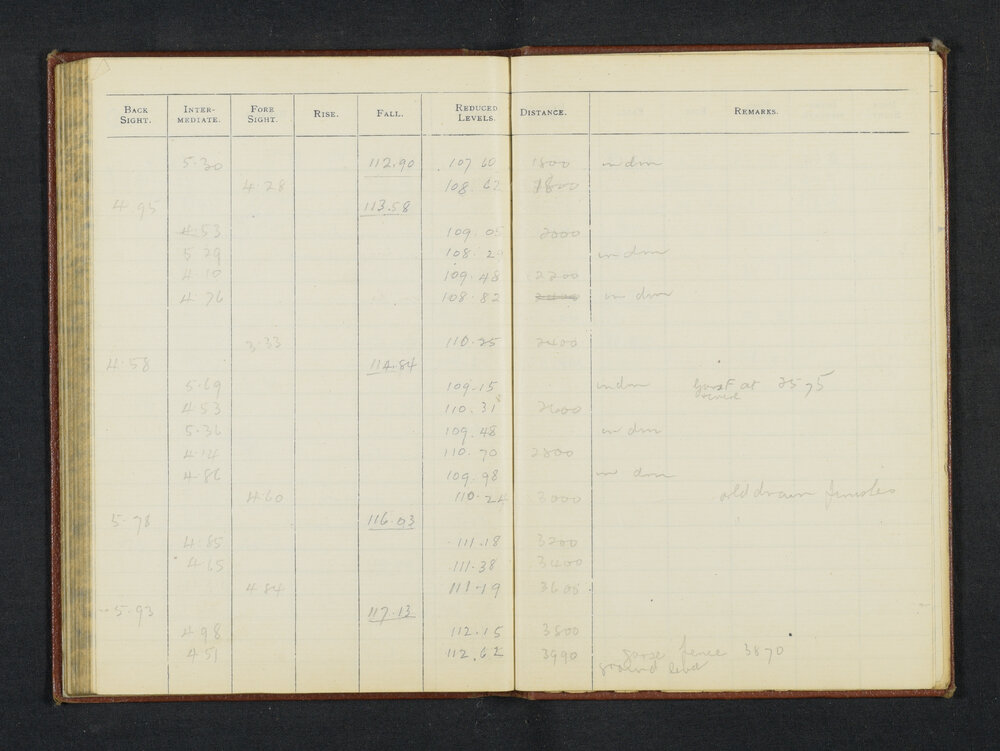 BACK SIGHT. INTER-MEDIATE. FORE SIGHT. RISE. FALL. REDUCED LEVELS. DISTANCE. REMARKS.
5.30 112.90 107 60 1800 in drn
4.28 108.62 1800
4.95 113.58
4.53 109.05 2000
5.29 108.2 in drn
4.10 109.48 2200
4.76 108.82 in drn
3.33 110.25 2400
4.58 114.84
5.69 109.15 in drn at 2575
4.53 110.31 2600
5.36 109.48 in drn
4.14 110.70 2800
4.86 109.98 in drn
4.60 110.24 3000 old drain finishes
5.78 116.03
4.85 111.18 3200
4.65 111.38 3400
4.84 111.19 3600
5.93 117.13
4.98 112.15 3800
4.51 112.62 3990 gorse fence 3870
ground level